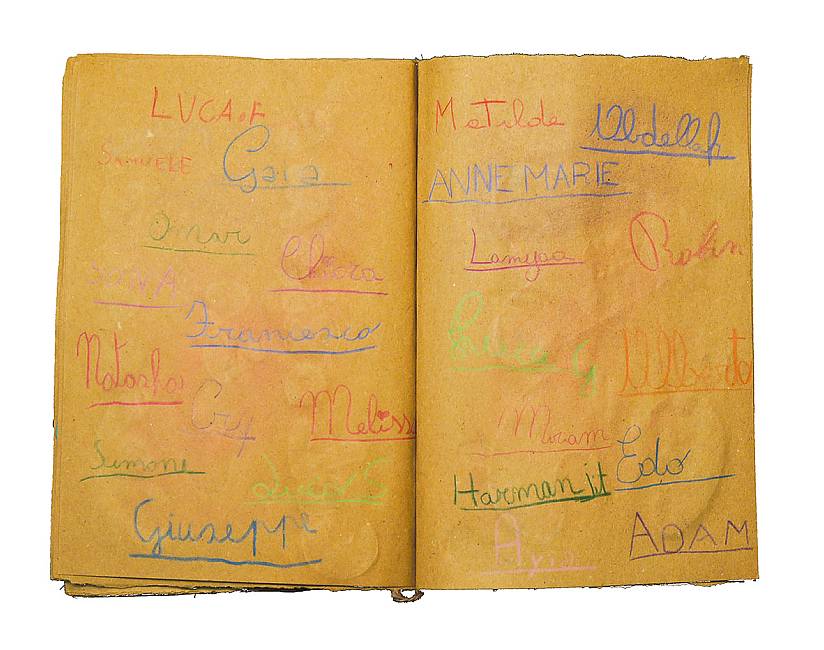 LUCA.F
SAMUELE Gaia
Omar
Chiara
SONA
Francesco
Natasha
Melissa
Simone
Luca S
Giuseppe
Matilde Abdellah
ANNE MARIE
Lamyaa Robin
Luca G Alberto
Miriam Edo
Harmanjit
Aya ADAM